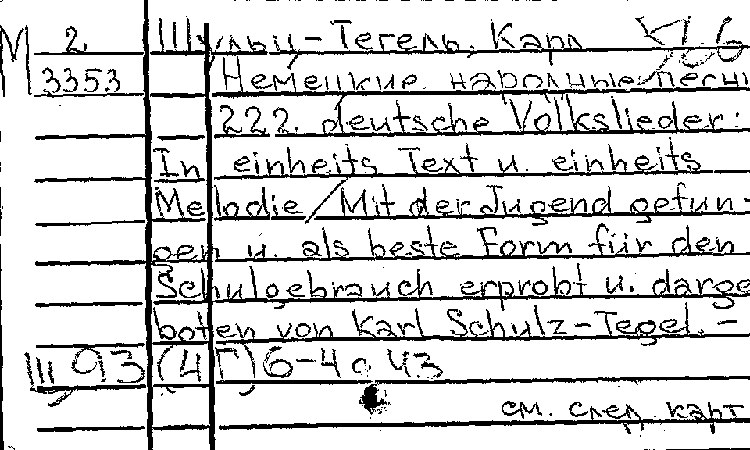 М 2 Шульц-Тегель, Карл
3353 Немецкие народные песни
222. deutsche Volkslieder:
In einheits Text u. einheits
Melodie/Mit der Jugend gefun-
den u. als beste Form für den
Schulgebrauch erprobt u. darge
boten von Karl Schulz-Tegel. -
Ш 93 (4Г) 6-4 с 43
см. след. карт